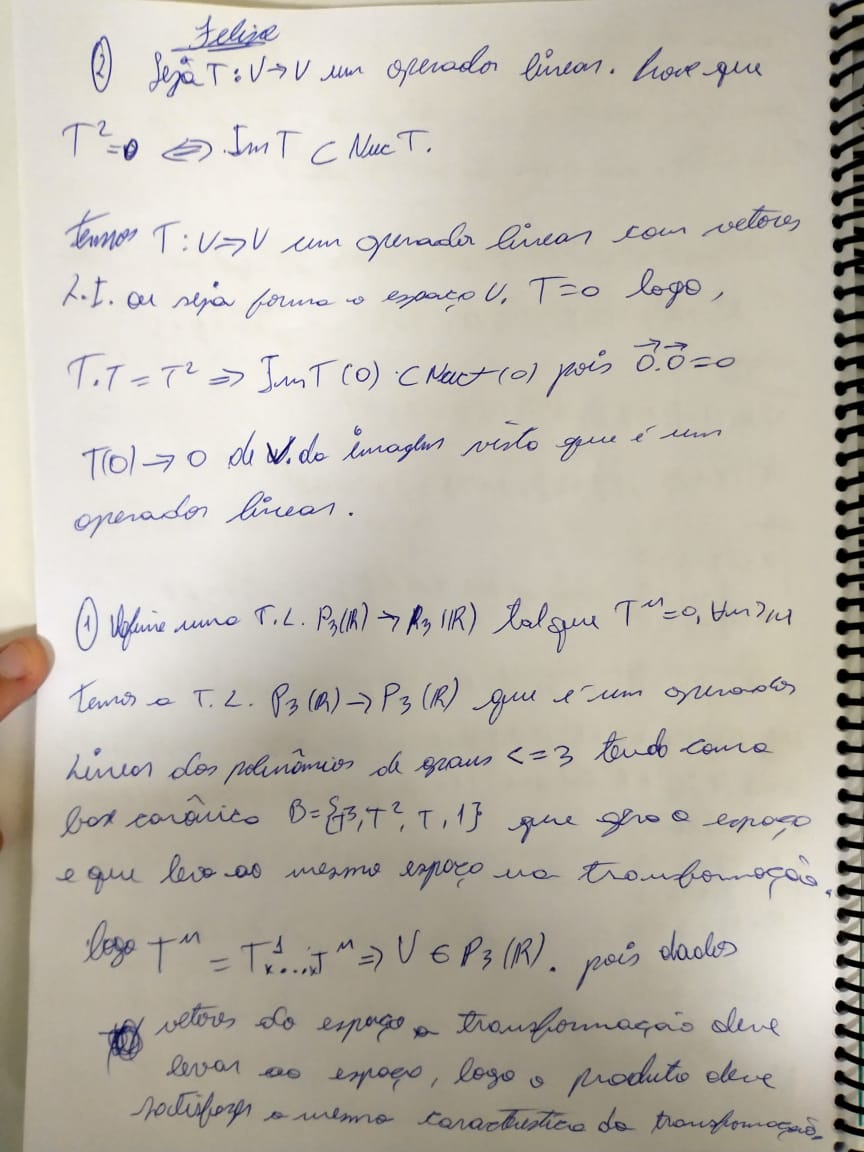 Felipe
② Seja T: V→V um operador linear. Prove que
T²=0 ⇔ ImT ⊂ NucT.
temos T: V→V um operador linear com vetores
L.I. ou seja forma o espaço V. T=0 logo,
T.T = T² ⇒ ImT(0) ⊂ NucT(0) pois 0⃗.0⃗=0
T(0)→0 de V. da imagem visto que é um
operador linear.
① Define uma T.L. P₃(R)→P₃(R) tal que Tⁿ=0, ∀n>
temos a T.L. P₃(R)→P₃(R) que é um operador
Linear dos polinômios de graus <=3 tendo como
base canônica B={T³,T²,T,1} que gera o espaço
e que leva ao mesmo espaço na transformação.
logo Tⁿ = T¹x...xTⁿ ⇒ V ∈ P₃(R). pois dados
vetores do espaço a transformação deve
levar ao espaço, logo o produto deve
satisfazer a mesma característica da transformação.